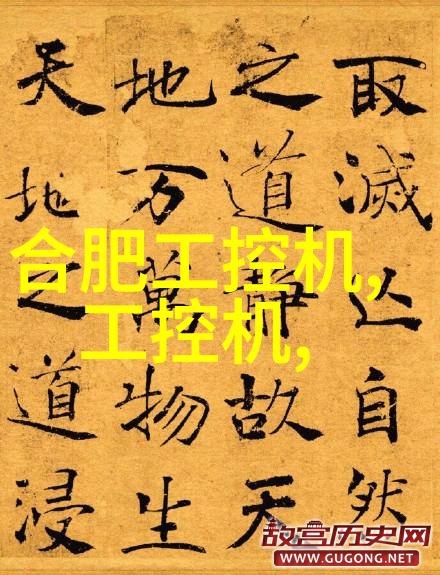 取滅亾自然
之道靜故天
地万萬物生
天地之道浸
合肥工控机,
工控机,
故宫历史网
WWW.GUGONG.NET